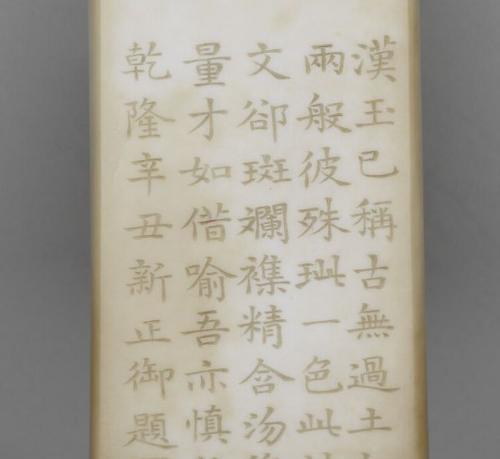 漢玉已稱古無過土
兩般彼殊玼一色此
文卻斑斕襍精含沕
量才如借喻吾亦慎
乾隆辛丑新正御題